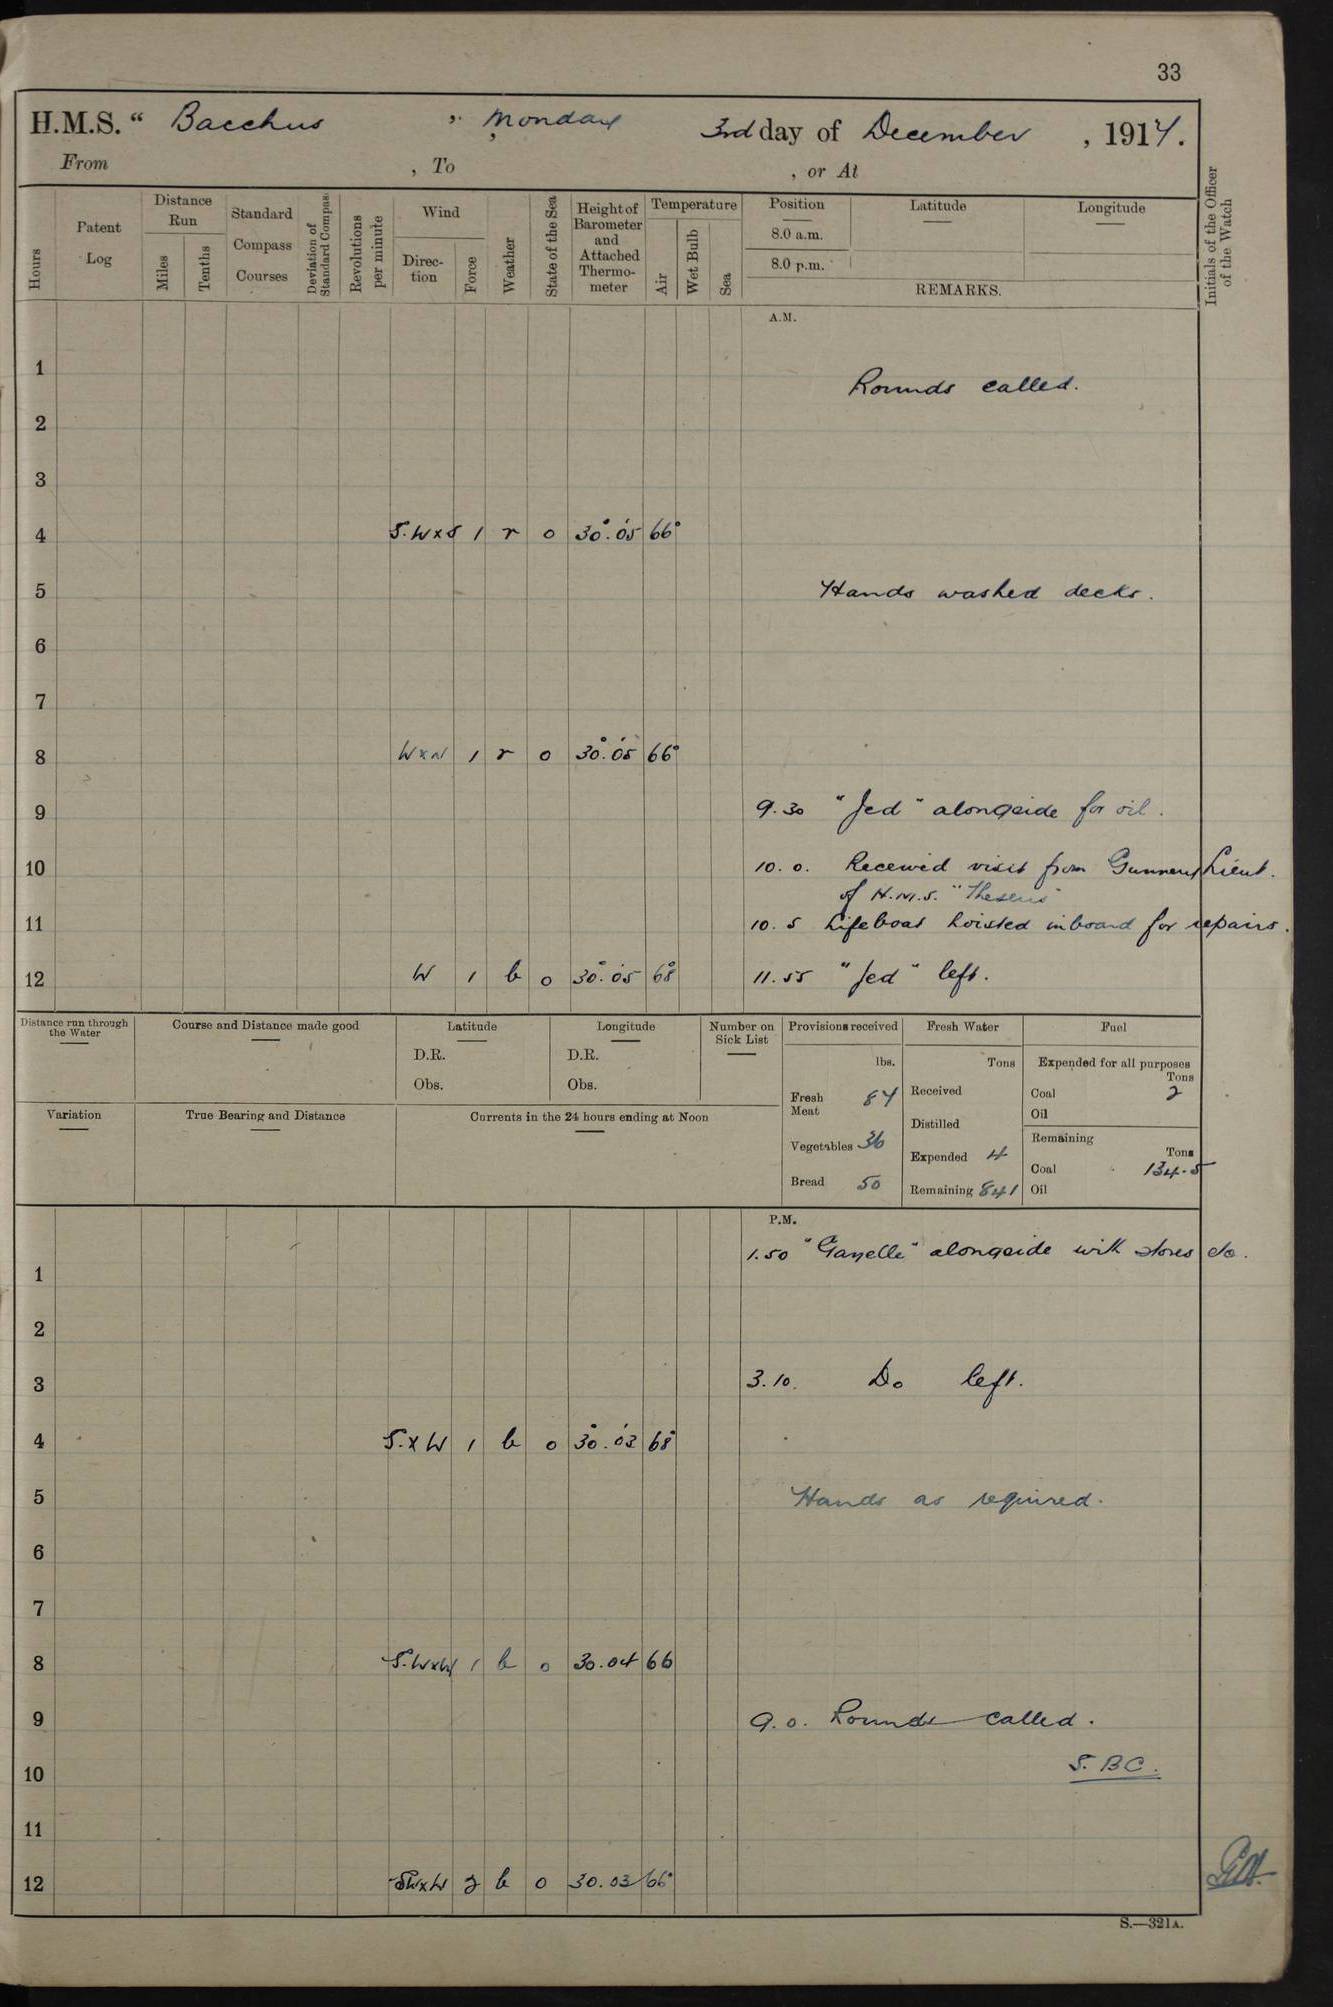 33
H.M.S. " Bacchus " , Monday 3rd day of December , 1917.
From , To , or At
Hours
Patent Log
Distance Run
Miles
Tenths
Standard Compass Courses
Deviation of Standard Compass
Revolutions per minute
Wind
Direction
Force
Weather
State of the Sea
Height of Barometer and Attached Thermometer
Temperature
Air
Wet Bulb
Sea
Position
8.0 a.m.
8.0 p.m.
Latitude
Longitude
REMARKS.
Initials of the Officer of the Watch
A.M.
1
Rounds called.
2
3
4 S.WxS 1 r o 30°.05' 66°
5 Hands washed decks.
6
7
8 WxN 1 r o 30°.05' 66°
9 9.30 "Jed" alongside for oil.
10 10.0. Received visit from Gunnery Lieut.
of H.M.S. "Theseus"
11 10.5 Lifeboat hoisted inboard for repairs.
12 W 1 b o 30°.05' 68° 11.55 "Jed" left.
Distance run through the Water
Course and Distance made good
Latitude
D.R.
Obs.
Longitude
D.R.
Obs.
Number on Sick List
Variation
True Bearing and Distance
Currents in the 24 hours ending at Noon
Provisions received
lbs.
Fresh Meat 84
Vegetables 36
Bread 50
Fresh Water
Tons
Received
Distilled
Expended 4
Remaining 841
Fuel
Expended for all purposes
Tons
Coal 2
Oil
Remaining
Tons
Coal 134.5
Oil
P.M.
1.50 "Gazelle" alongside with stores etc.
1
2
3 3.10. Do left.
4 S.xW 1 b o 30°.03' 68°
5 Hands as required.
6
7
8 S.WxW 1 b o 30.04 66
9 9.0. Rounds called.
S.BC.
10
11
12 SWxW 2 b o 30.03 66°
S.—321A.